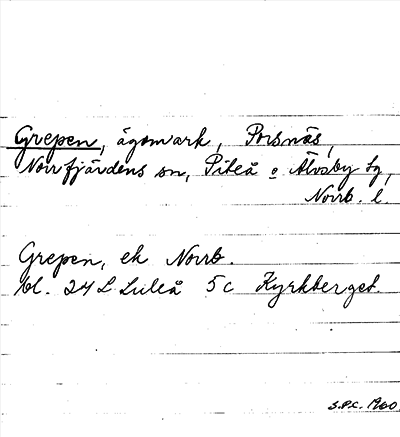 Grepen, ägomark, Porsnäs,
Norrfjärdens sn, Piteå o Älvsby tg,
Norrb. l.
Grepen, ek Norrb.
bl. 24 L Luleå 5c Kyrkberget.
S.P.C. 1960